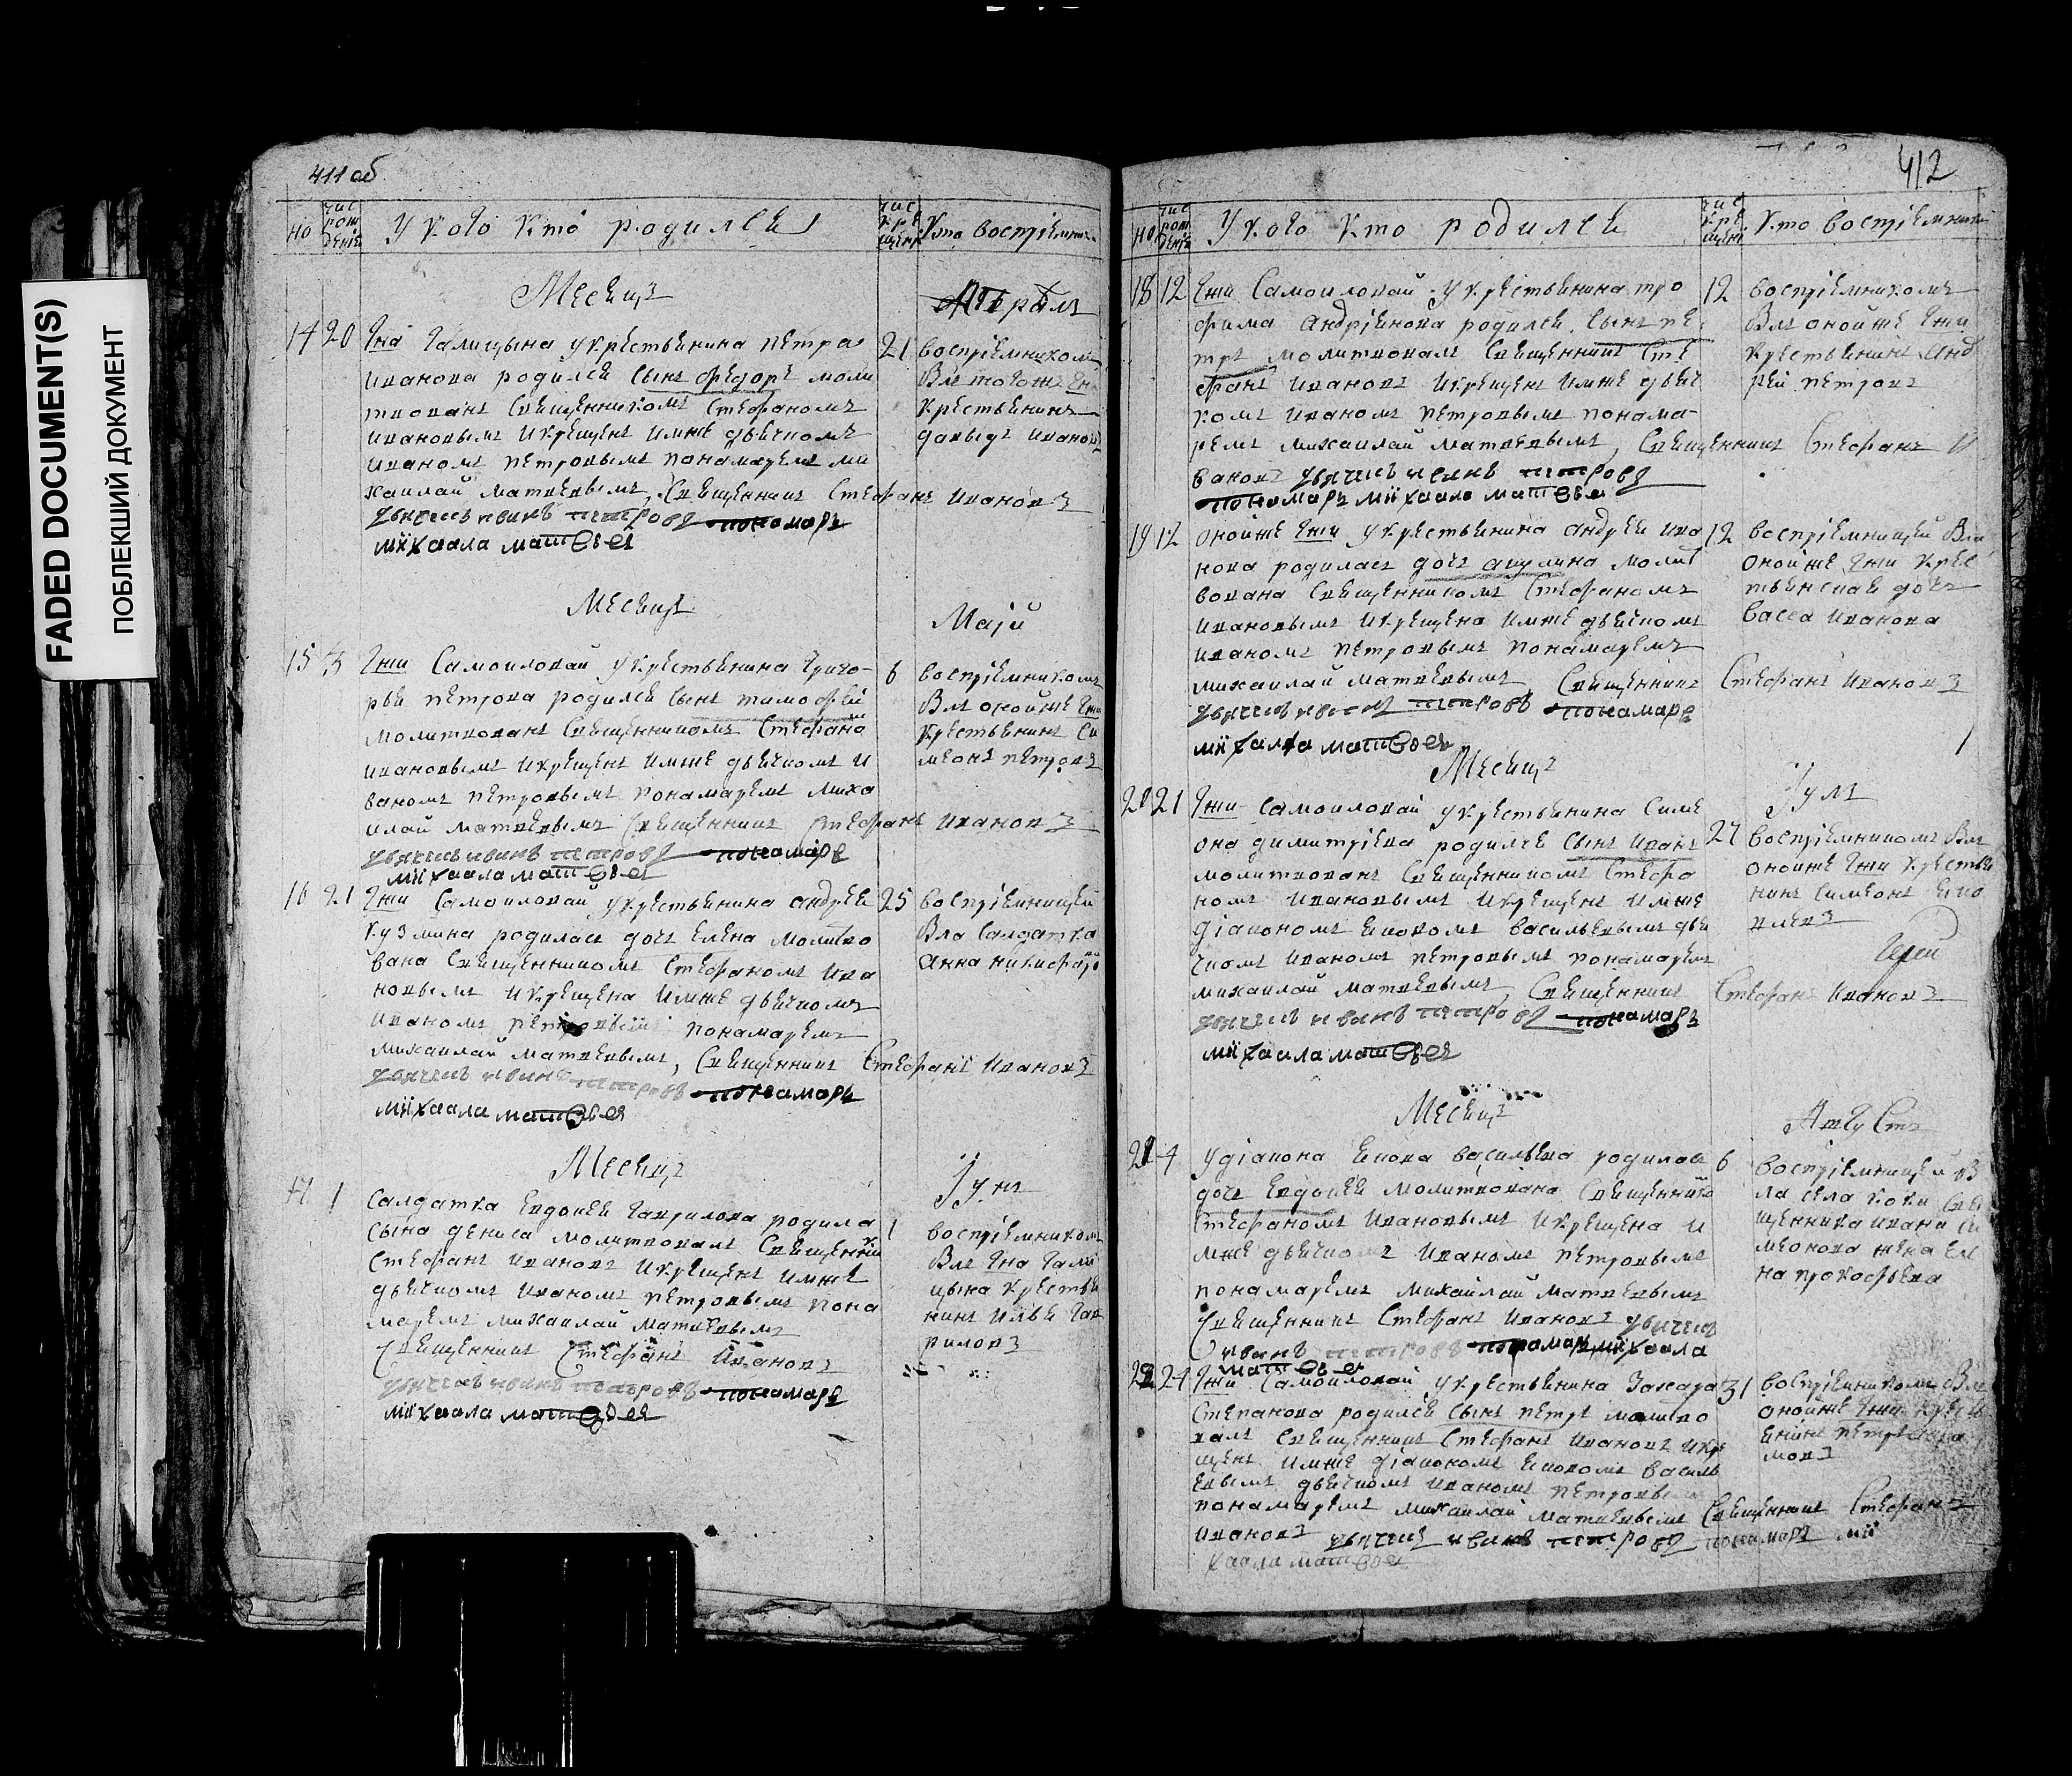 FADED DOCUMENT(S)
ПОБЛЕКШИЙ ДОКУМЕНТ
411 об
но
чис рож дение
У кого кто родился
чис кре щени
Кто восприемник
Месяца
Апрѣля
14 20
Гна Галицына у крестьянина петра
иванова родился сынъ федоръ моли
твованъ священникомъ стефаномъ
ивановымъ и крещенъ имже дьячкомъ
иваномъ петровымъ понамаремъ ми
хаилай матвевымъ, священникъ стефанъ ивановъ
дьячекъ иванъ петровъ пономарь
михаила матѳѣевъ
21 восприемникомъ
былъ тогожъ Гна
крестьянинъ
давыдъ ивановъ
Месяца
Маія
15 3
Гжи Самойловай у крестьянина григо-
рья петрова родился сынъ тимофей
молитвованъ священникомъ стефано
ивановымъ и крещенъ имже дьячкомъ и
ваномъ петровымъ понамаремъ миха
илай матвевымъ священникъ стефанъ ивановъ
дьячекъ иванъ петровъ пономарь
михаила матѳѣевъ
6 восприемникомъ
былъ оной же Гжи
крестьянинъ си
меонъ петровъ
16 21
Гжи Самойловай у крестьянина андрея
кузмина родилась дочь елена молитво
вана священникомъ стефаномъ ива
новымъ и крещена имже дьячкомъ
иваномъ петровымъ понамаремъ
михаилай матвевымъ, священникъ стефанъ ивановъ
дьячекъ иванъ петровъ пономарь
михаила матѳѣевъ
25 восприемницей
была салдатка
анна никифоро
Месяца
Іуня
17 1
салдатка евдокея гаврилова родила
сына дениса молитвовалъ священникъ
стефанъ ивановъ и крещенъ имже
дьячкомъ иваномъ петровымъ пона
маремъ михаилай матвевымъ
священникъ стефанъ ивановъ
дьячекъ иванъ петровъ пономарь
михаила матѳѣевъ
1 восприемникомъ
былъ Гна гали
цына крестья
нинъ илья гав
риловъ
412
но
чис рож дение
У кого кто родился
чис кре щени
Кто восприемник
18 12
Гжи Самойловай у крестьянина тро
фима андреянова родился сынъ пе
тръ молитвовалъ священникъ сте
фанъ ивановъ и крещенъ имже дьяч
комъ иваномъ петровымъ понама-
ремъ михаилай матвевымъ, священникъ стефанъ и
вановъ дьячекъ иванъ петровъ
пономарь михаила матѳѣевъ
12 восприемникомъ
былъ оной же Гжи
крестьянинъ анд
рей петровъ
19 12
оной же Гжи у крестьянина андрея ива
нова родилась дочь акулина молит
вована священникомъ стефаномъ
ивановымъ и крещена имже дьячкомъ
иваномъ петровымъ понамаремъ
михаилай матвевымъ священникъ стефанъ ивановъ
дьячекъ иванъ петровъ пономарь
михаила матѳѣевъ
12 восприемницей бла
оной же Гжи крес
тьянская дочь
васса иванова
Месяца
Іуля
20 21
Гжи самойловай у крестьянина симе
она димитрiева родился сынъ иванъ
молитвованъ священникомъ стефа
номъ ивановымъ и крещенъ имже
діакономъ яковомъ васильевымъ дья
чкомъ иваномъ петровымъ понамаремъ
михаилай матвевымъ, священникъ стефанъ ивановъ
дьячекъ иванъ петровъ пономарь
михаила матѳѣевъ
27 восприемникомъ былъ
оной же Гжи крестья
нинъ симеонъ яко
влевъ
Месяца
Августа
21 4
у діакона якова васильева родилась
дочь евдокея молитвована священнико
стефаномъ ивановымъ и крещена и
мже дьячкомъ иваномъ петровымъ
понамаремъ михаилай матвевымъ
священникъ стефанъ ивановъ дьячекъ
иванъ петровъ пономарь михаила
матѳѣевъ
6 восприемницей бы
ла села коки свя
щенника ивана си
меонова жена еле
на прокофьева
22 24
Гжи самойловай у крестьянина захара
степанова родился сынъ петръ молитво
валъ священникъ стефанъ ивановъ и кре
щенъ имже діакономъ яковомъ василь
евымъ дьячкомъ иваномъ петровы
понамаремъ михаилай матвевымъ священникъ стефанъ
ивановъ дьячекъ иванъ петровъ пономарь ми
хаила матѳѣевъ
31 восприемникомъ былъ
оной же Гжи кресть
янинъ петръ